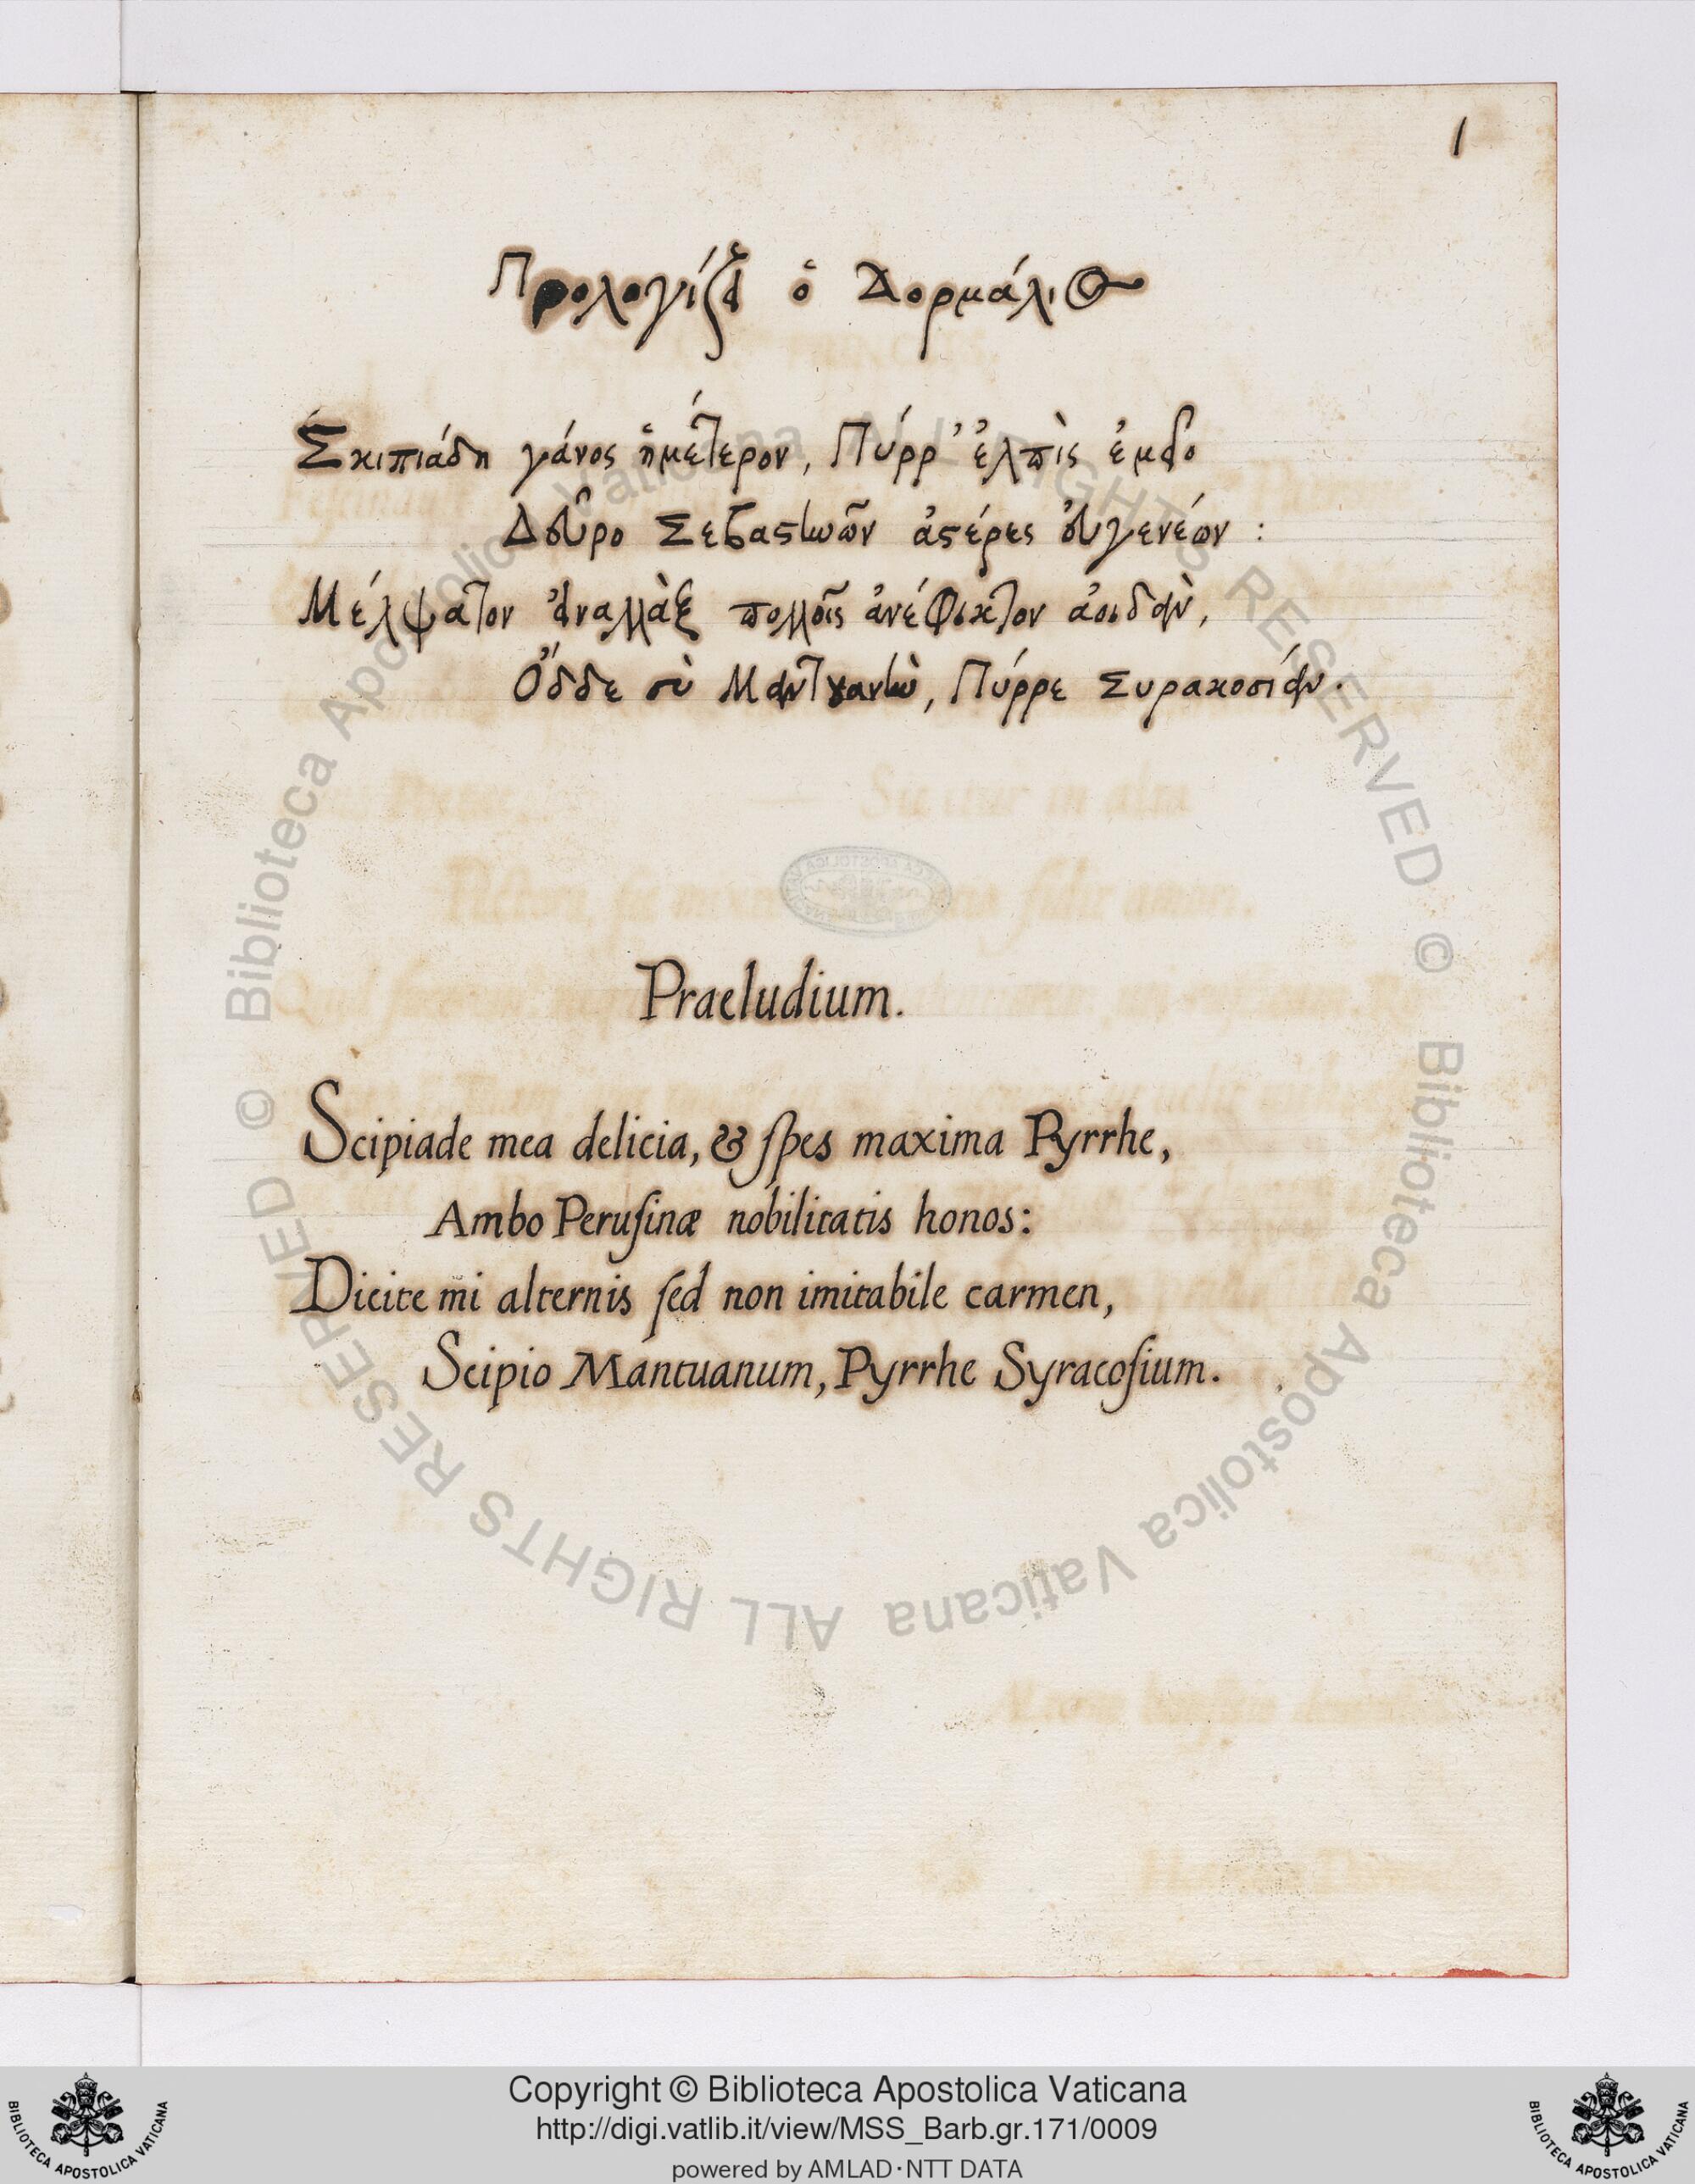 1
Προλογίζει ὁ Δορμάλιος
Σκιπιάδη γάνος ἡμέτερον, Πύρρ' ἐλπὶς ἐμεῖο
Δεῦρο Σεβαστηνῶν ἀστέρες εὐγενέων:
Μέλψατον ἀναλλὰξ πολλοῖς ἀνέφικτον ἀοιδὴν,
Ὅδδε σὺ Μαντγανὴν, Πύρρε Συρακοσίην.
Praeludium.
Scipiade mea delicia, & spes maxima Pyrrhe,
Ambo Perusinæ nobilitatis honos:
Dicite mi alternis sed non imitabile carmen,
Scipio Mantuanum, Pyrrhe Syracosium.
© Biblioteca Apostolica Vaticana ALL RIGHTS RESERVED © Biblioteca Apostolica Vaticana ALL RIGHTS RESERVED
BIBLIOTECA APOSTOLICA VATICANA
Copyright © Biblioteca Apostolica Vaticana
http://digi.vatlib.it/view/MSS_Barb.gr.171/0009
powered by AMLAD·NTT DATA
BIBLIOTECA APOSTOLICA VATICANA